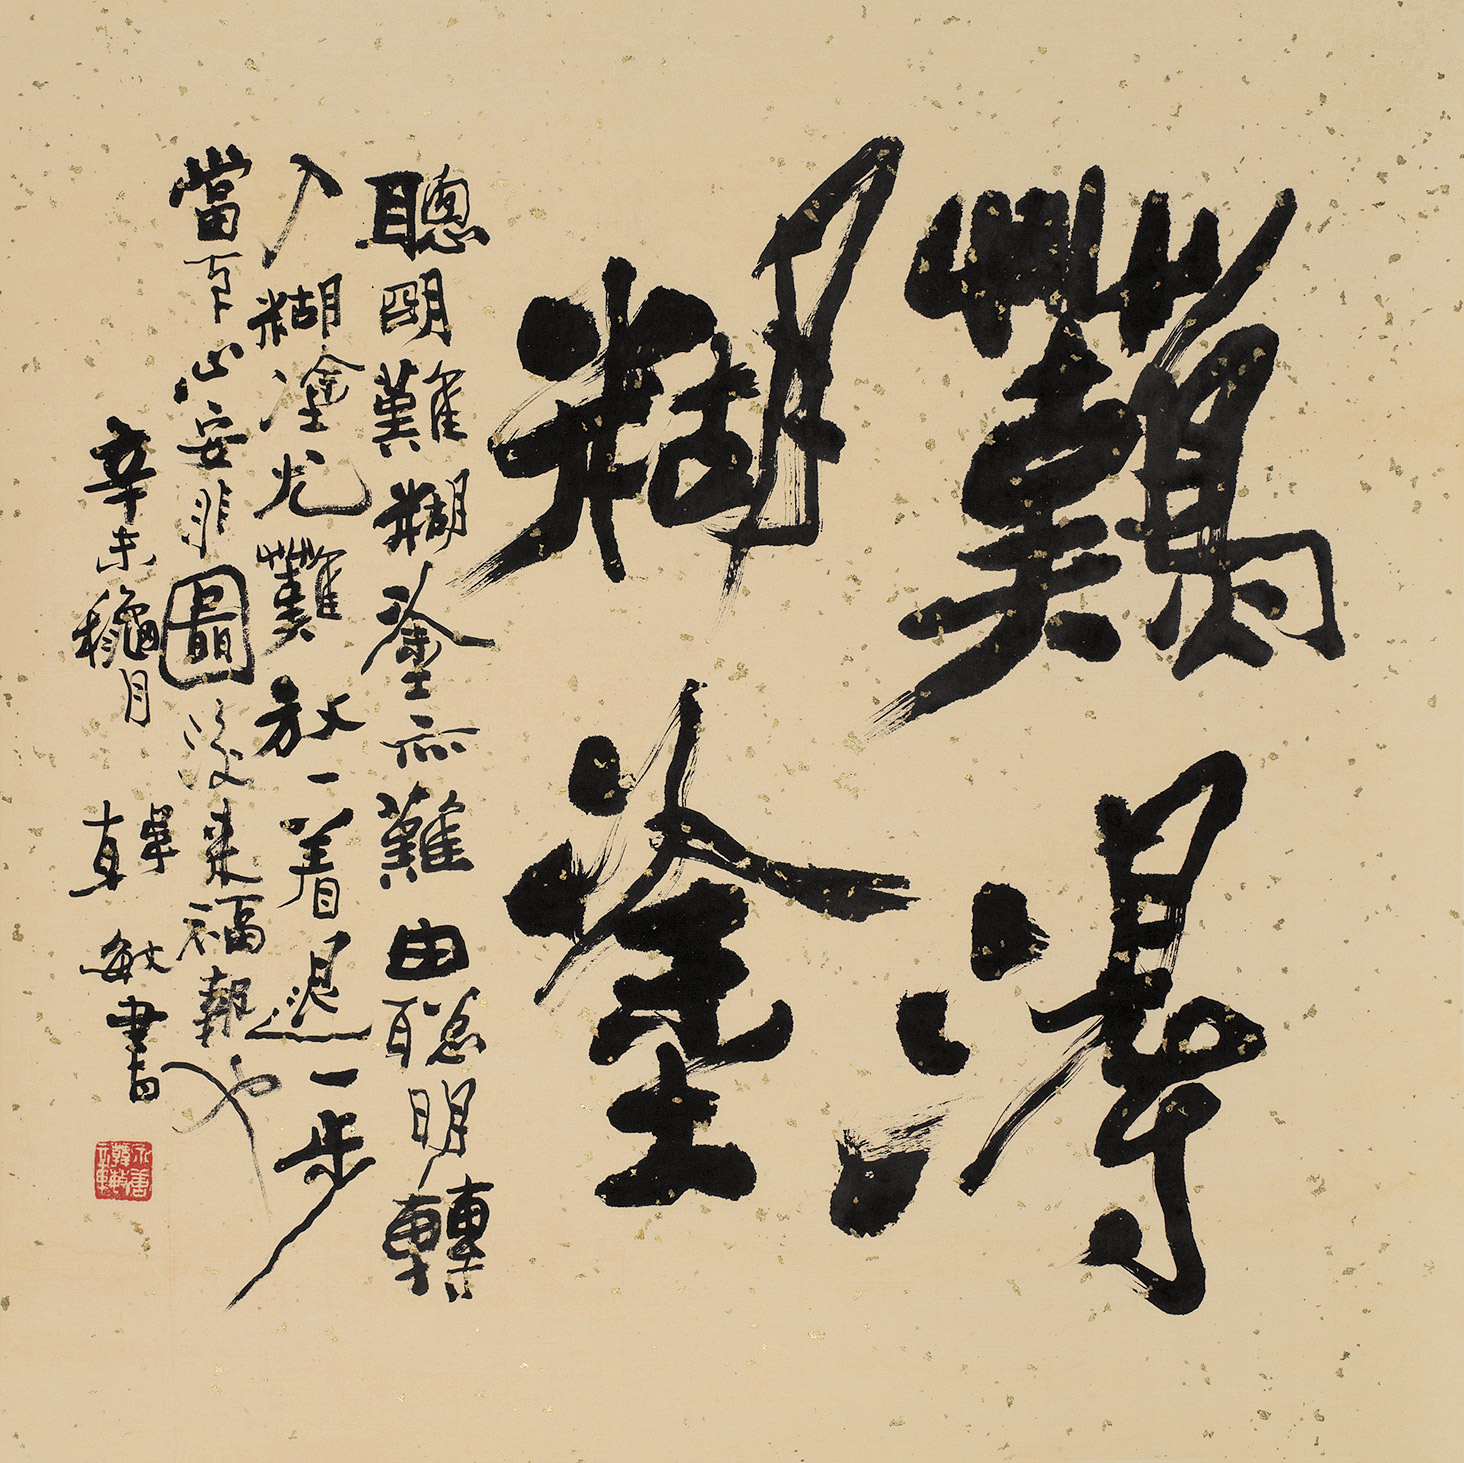 難得
糊塗
聰明難糊塗亦難由聰明轉
入糊塗尤難放一着退一步
當下心安非圖後來福報也
辛未穐月 韓敏書